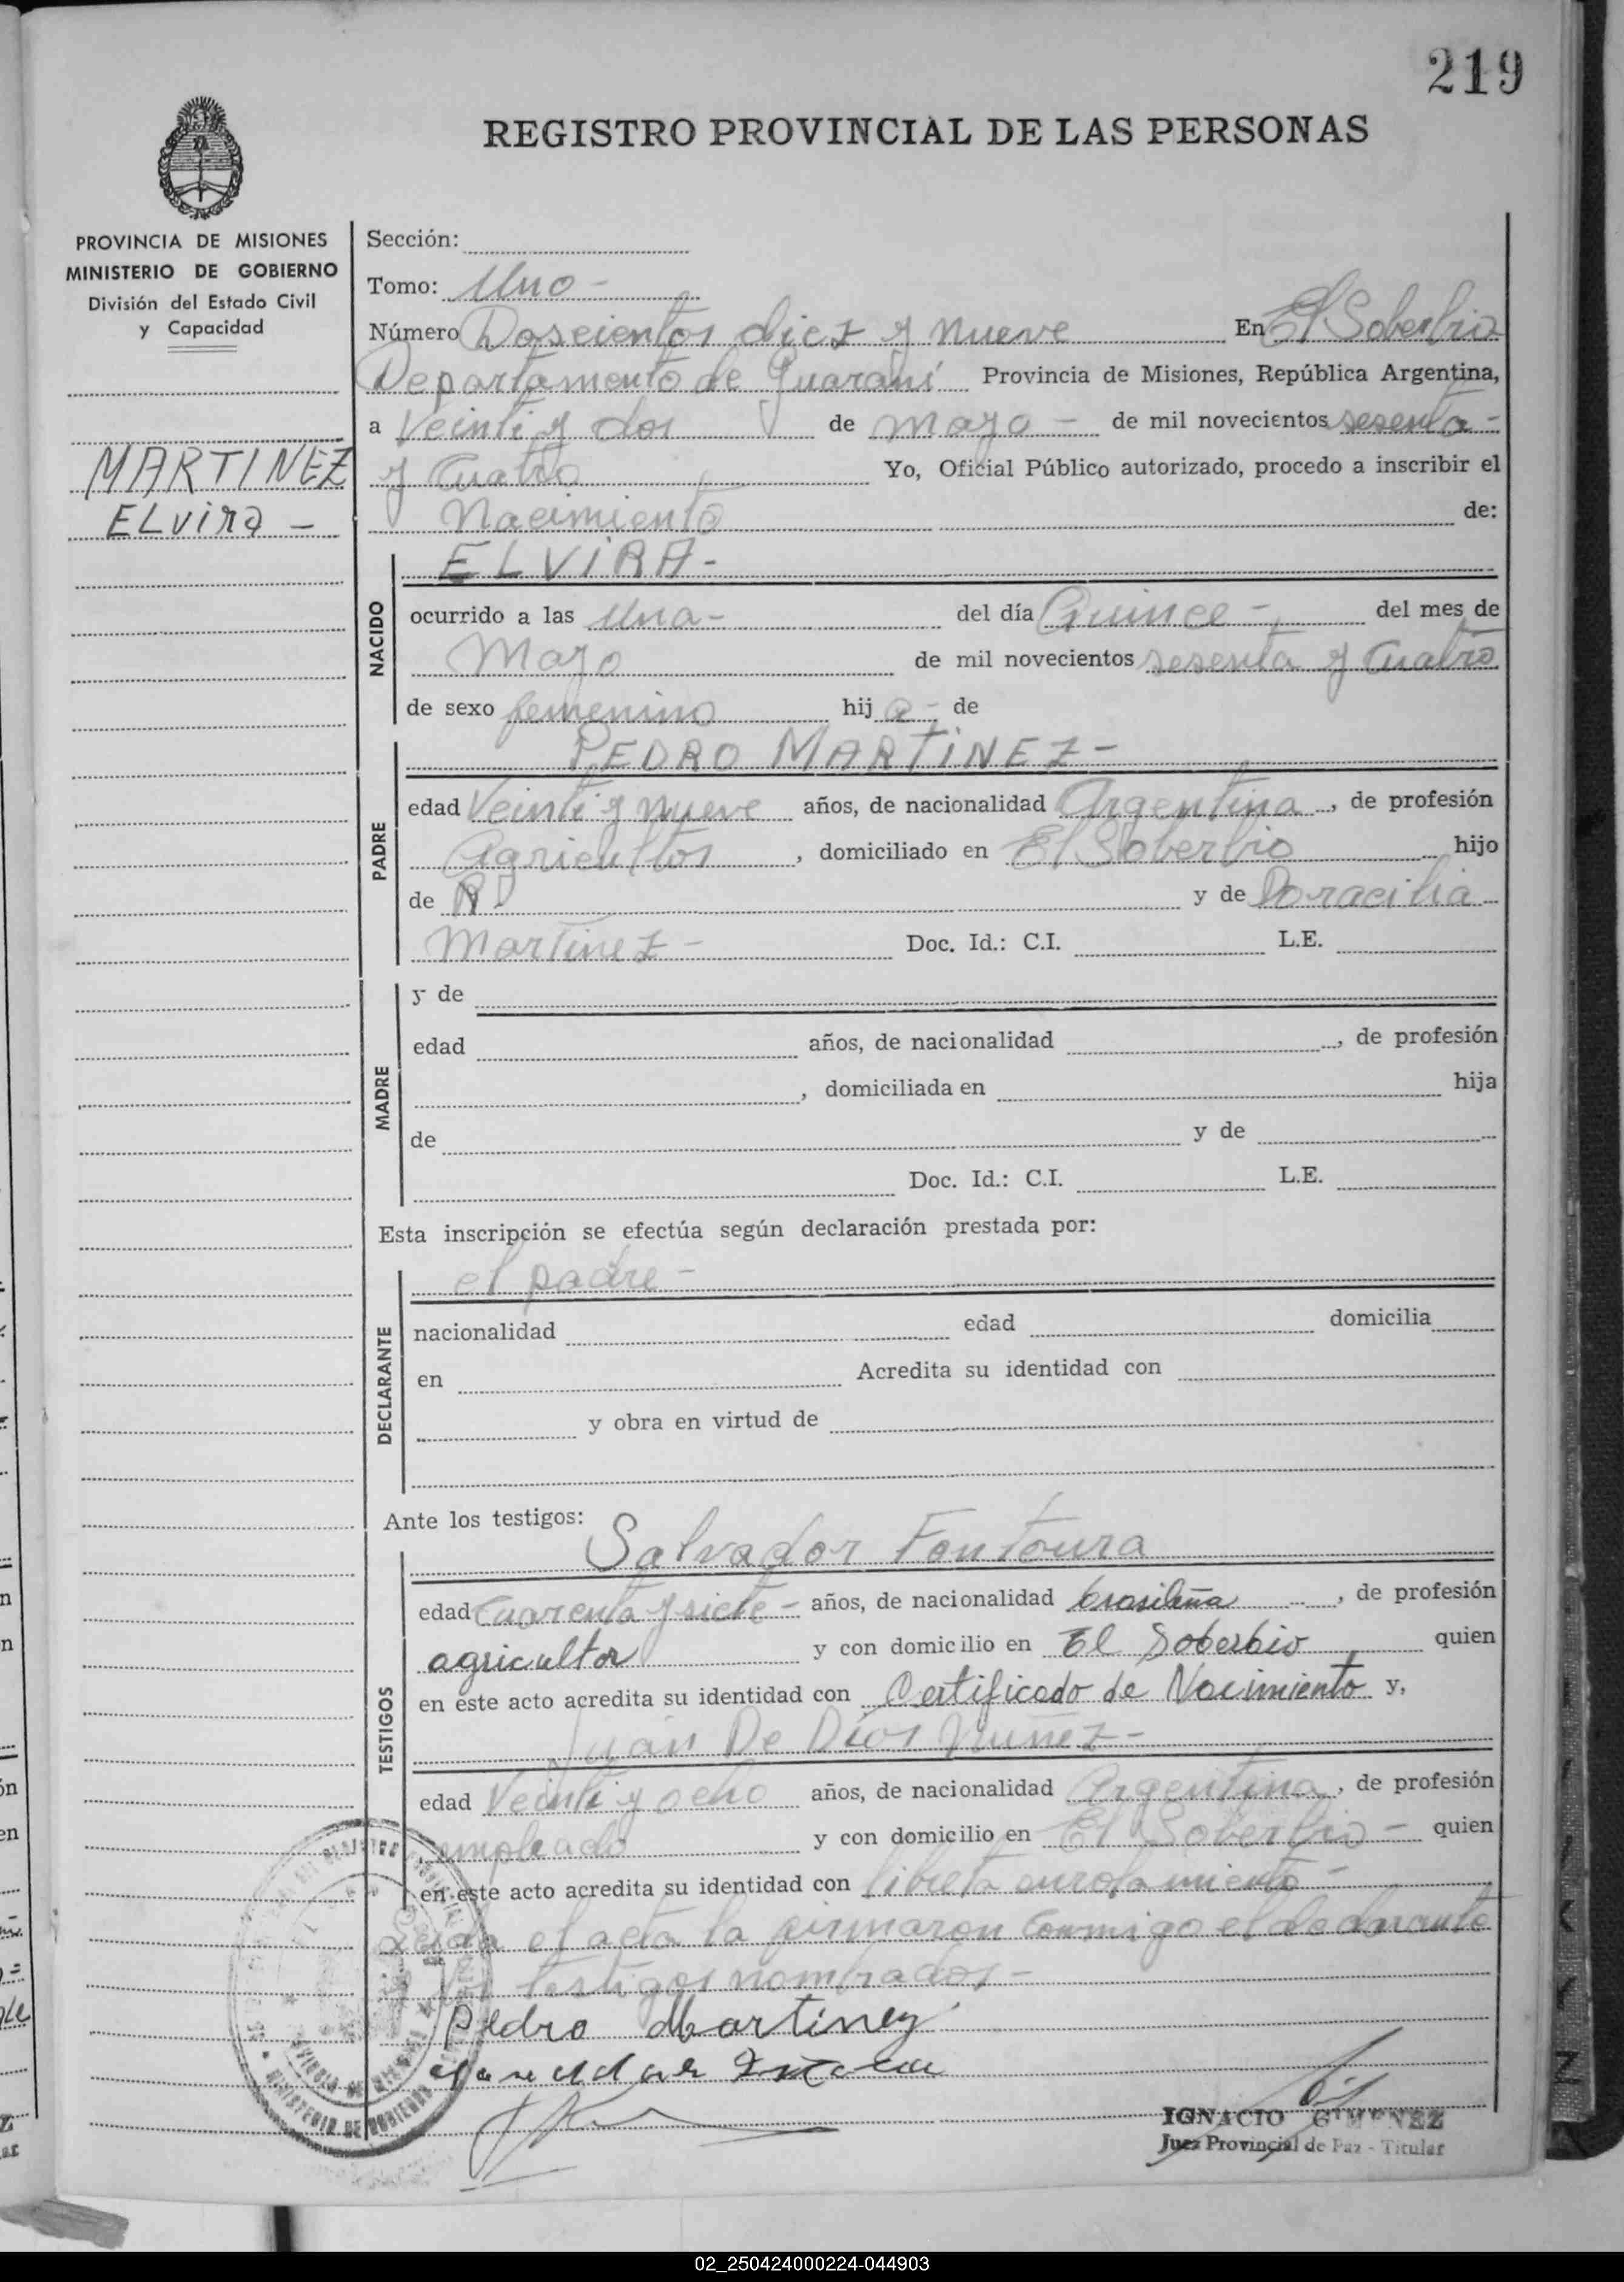 219
REGISTRO PROVINCIAL DE LAS PERSONAS
PROVINCIA DE MISIONES
MINISTERIO DE GOBIERNO
División del Estado Civil
y Capacidad
MARTINEZ
ELvira -
Sección:
Tomo: Uno -
Número Doscientos diez y nueve En El Soberbio
Departamento de Guaraní Provincia de Misiones, República Argentina,
a Veinti y dos de mayo - de mil novecientos sesenta -
y Cuatro Yo, Oficial Público autorizado, procedo a inscribir el
Nacimiento de:
NACIDO
ELVIRA -
ocurrido a las Una - del día Quince - del mes de
Mayo de mil novecientos sesenta y Cuatro
de sexo femenino hij a - de
PADRE
PEDRO MARTINEZ -
edad Veinti y nueve años, de nacionalidad Argentina, de profesión
Agricultor, domiciliado en El Soberbio hijo
de y de Doracilia
Martinez - Doc. Id.: C.I. L.E.
MADRE
y de
edad años, de nacionalidad , de profesión
, domiciliada en hija
de y de
Doc. Id.: C.I. L.E.
Esta inscripción se efectúa según declaración prestada por:
DECLARANTE
el padre -
nacionalidad edad domicilia
en Acredita su identidad con
y obra en virtud de
Ante los testigos:
TESTIGOS
Salvador Fontoura
edad Cuarenta y siete - años, de nacionalidad brasileña, de profesión
agricultor y con domicilio en El Soberbio quien
en este acto acredita su identidad con Certificado de Nacimiento y,
Juan De Dios Nuñez -
edad Veinti y ocho años, de nacionalidad Argentina, de profesión
empleado y con domicilio en El Soberbio - quien
en este acto acredita su identidad con libreta enrolamiento -
Leida el acta la firmaron conmigo el declarante
testigos nombrados -
Pedro Martinez
IGNACIO GIMENEZ
Juez Provincial de Paz - Titular
MINISTERIO DE GOBIERNO
02_250424000224-044903